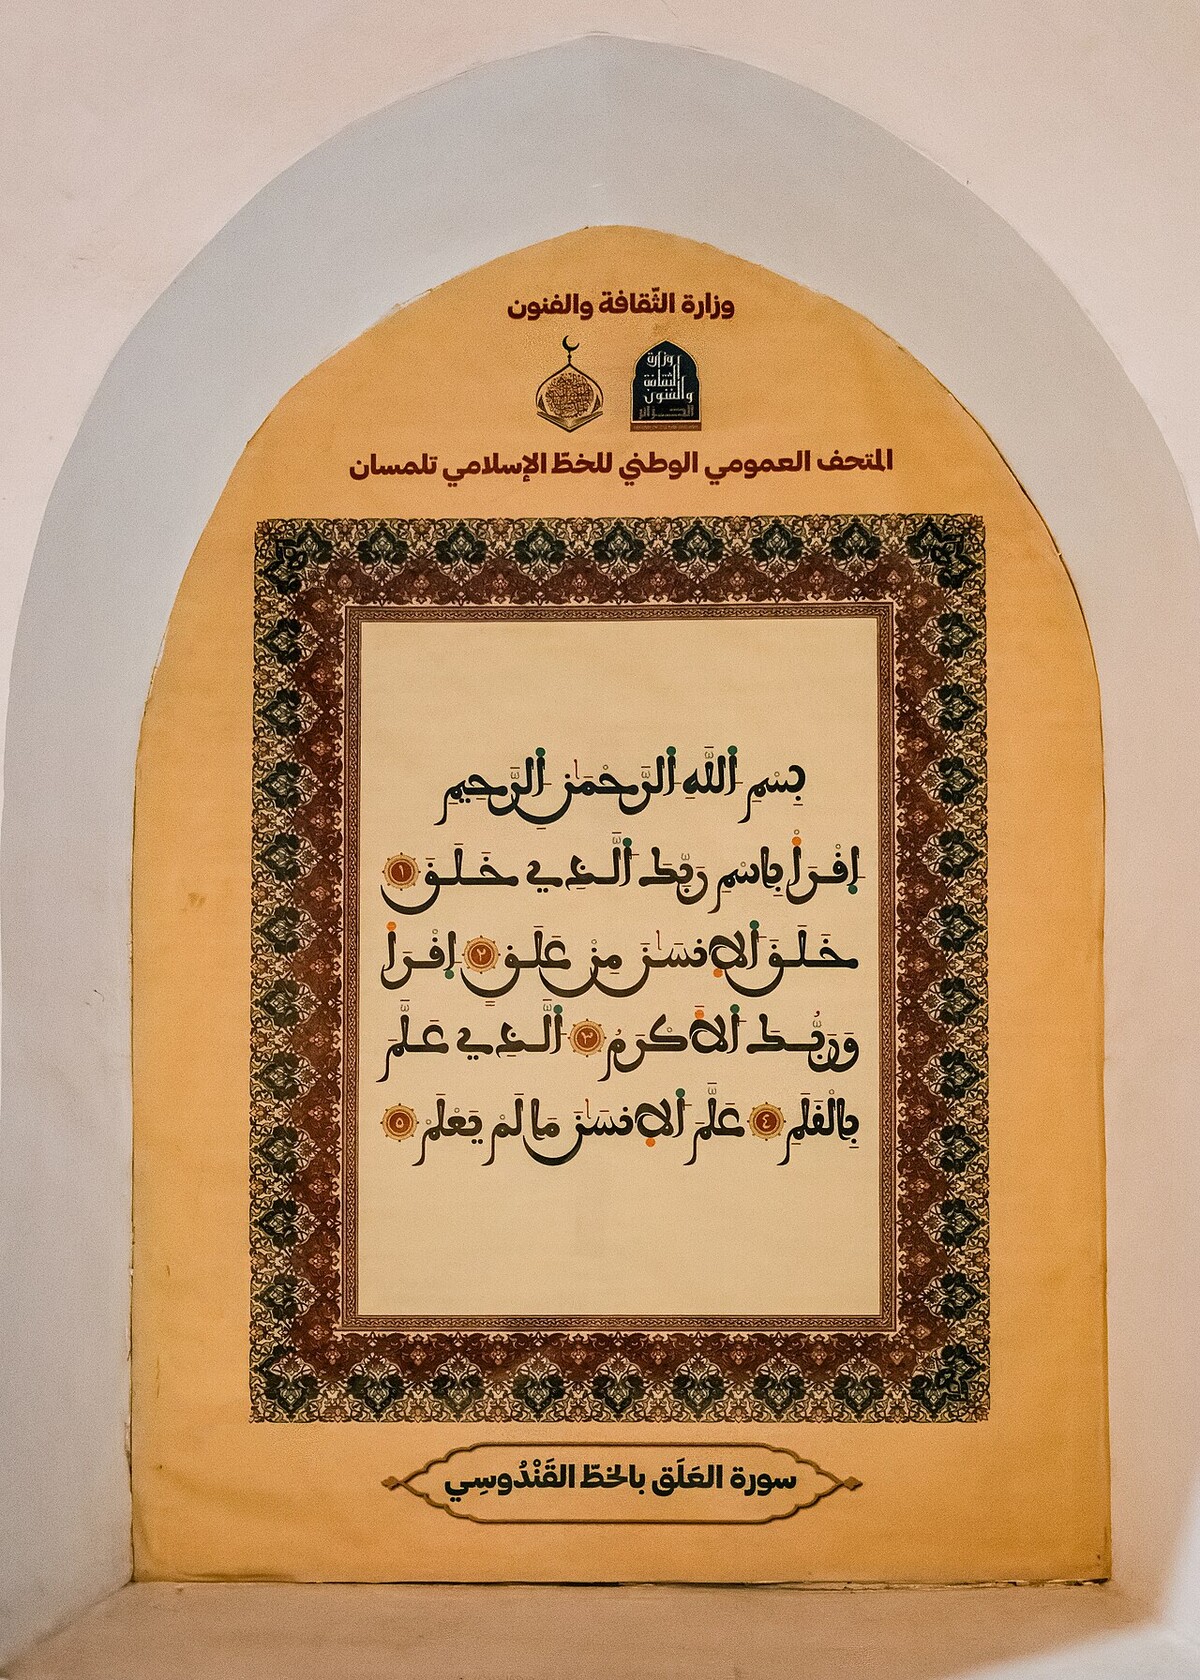 وزارة الثّقافة والفنون
وزارة
الثقافة
والفنون
الجزائر
المتحف العمومي الوطني للخطّ الإسلامي تلمسان
بِسْمِ اللَّهِ الرَّحْمَٰنِ الرَّحِيمِ
اِقْرَأْ بِاسْمِ رَبِّكَ الَّذِي خَلَقَ ١
خَلَقَ الْإِنسَٰنَ مِنْ عَلَقٍ ٢ اِقْرَأْ
وَرَبُّكَ الْأَكْرَمُ ٣ الَّذِي عَلَّمَ
بِالْقَلَمِ ٤ عَلَّمَ الْإِنسَٰنَ مَا لَمْ يَعْلَمْ ٥
سورة العَلَق بالخطّ القَنْدُوسِي